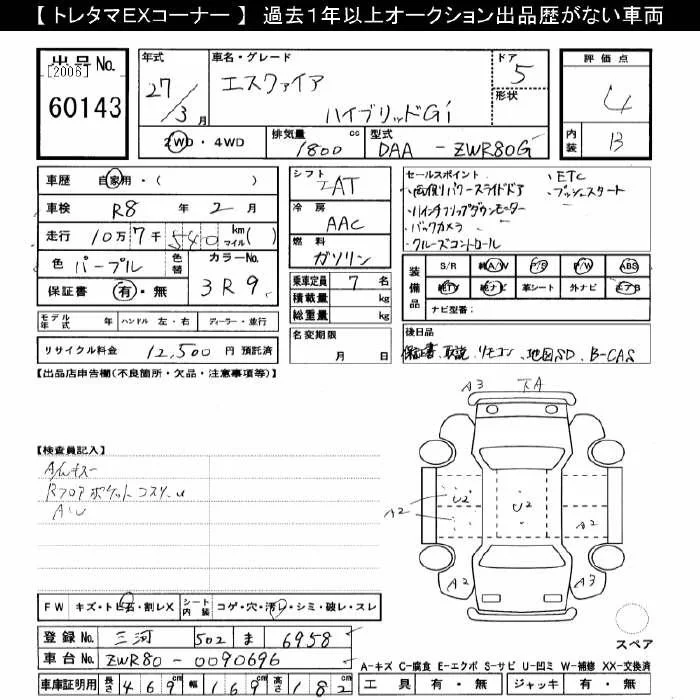 【 トレタマEXコーナー 】 過去1年以上オークション出品歴がない車両
出品No.
[2006]
60143
年式
27/3月
車名・グレード
エスクァイア
ハイブリッドGi
ドア
5
形状
評価点
4
内装
B
2WD・4WD
排気量
1800 cc
型式
DAA - ZWR80G
車歴 自家用・( )
車検 R8 年 2 月
走行 10万 7千 540 km マイル( )
色 パープル 色替 カラーNo.
3R9
保証書 有・無
シフト
IAT
冷房
AAC
燃料
ガソリン
乗車定員 7 名
積載量 kg
総重量 kg
セールスポイント
・両側パワースライドドア
・ETC
・プッシュスタート
・バックカメラ
・クルーズコントロール
装備品
S/R 純A/W P/S P/W ABS
純TV 純ナビ 革シート 外ナビ エアB
ナビ型番:
モデル年式 年 ハンドル 左・右 ディーラー・並行
リサイクル料金 12,500 円 預託済
名変期限
月 日
後日品
保証書、取説、リモコン、地図SD、B-CAS
【出品店申告欄(不良箇所・欠品・注意事項等)】
【検査員記入】
A3
A2
U2
U2
A2
A2
A3
FW キズ・トビ石・割レX シート内装 コゲ・穴・汚レ・シミ・破レ・スレ
登録No. 三河 502 ま 6958
車台No. ZWR80-0090696
車庫証明用 長さ 469cm 幅 169cm 高さ 182cm
スペア
A-キズ C-腐食 E-エクボ S-サビ U-凹ミ W-補修 XX-交換済
工具 有・無 ジャッキ 有・無